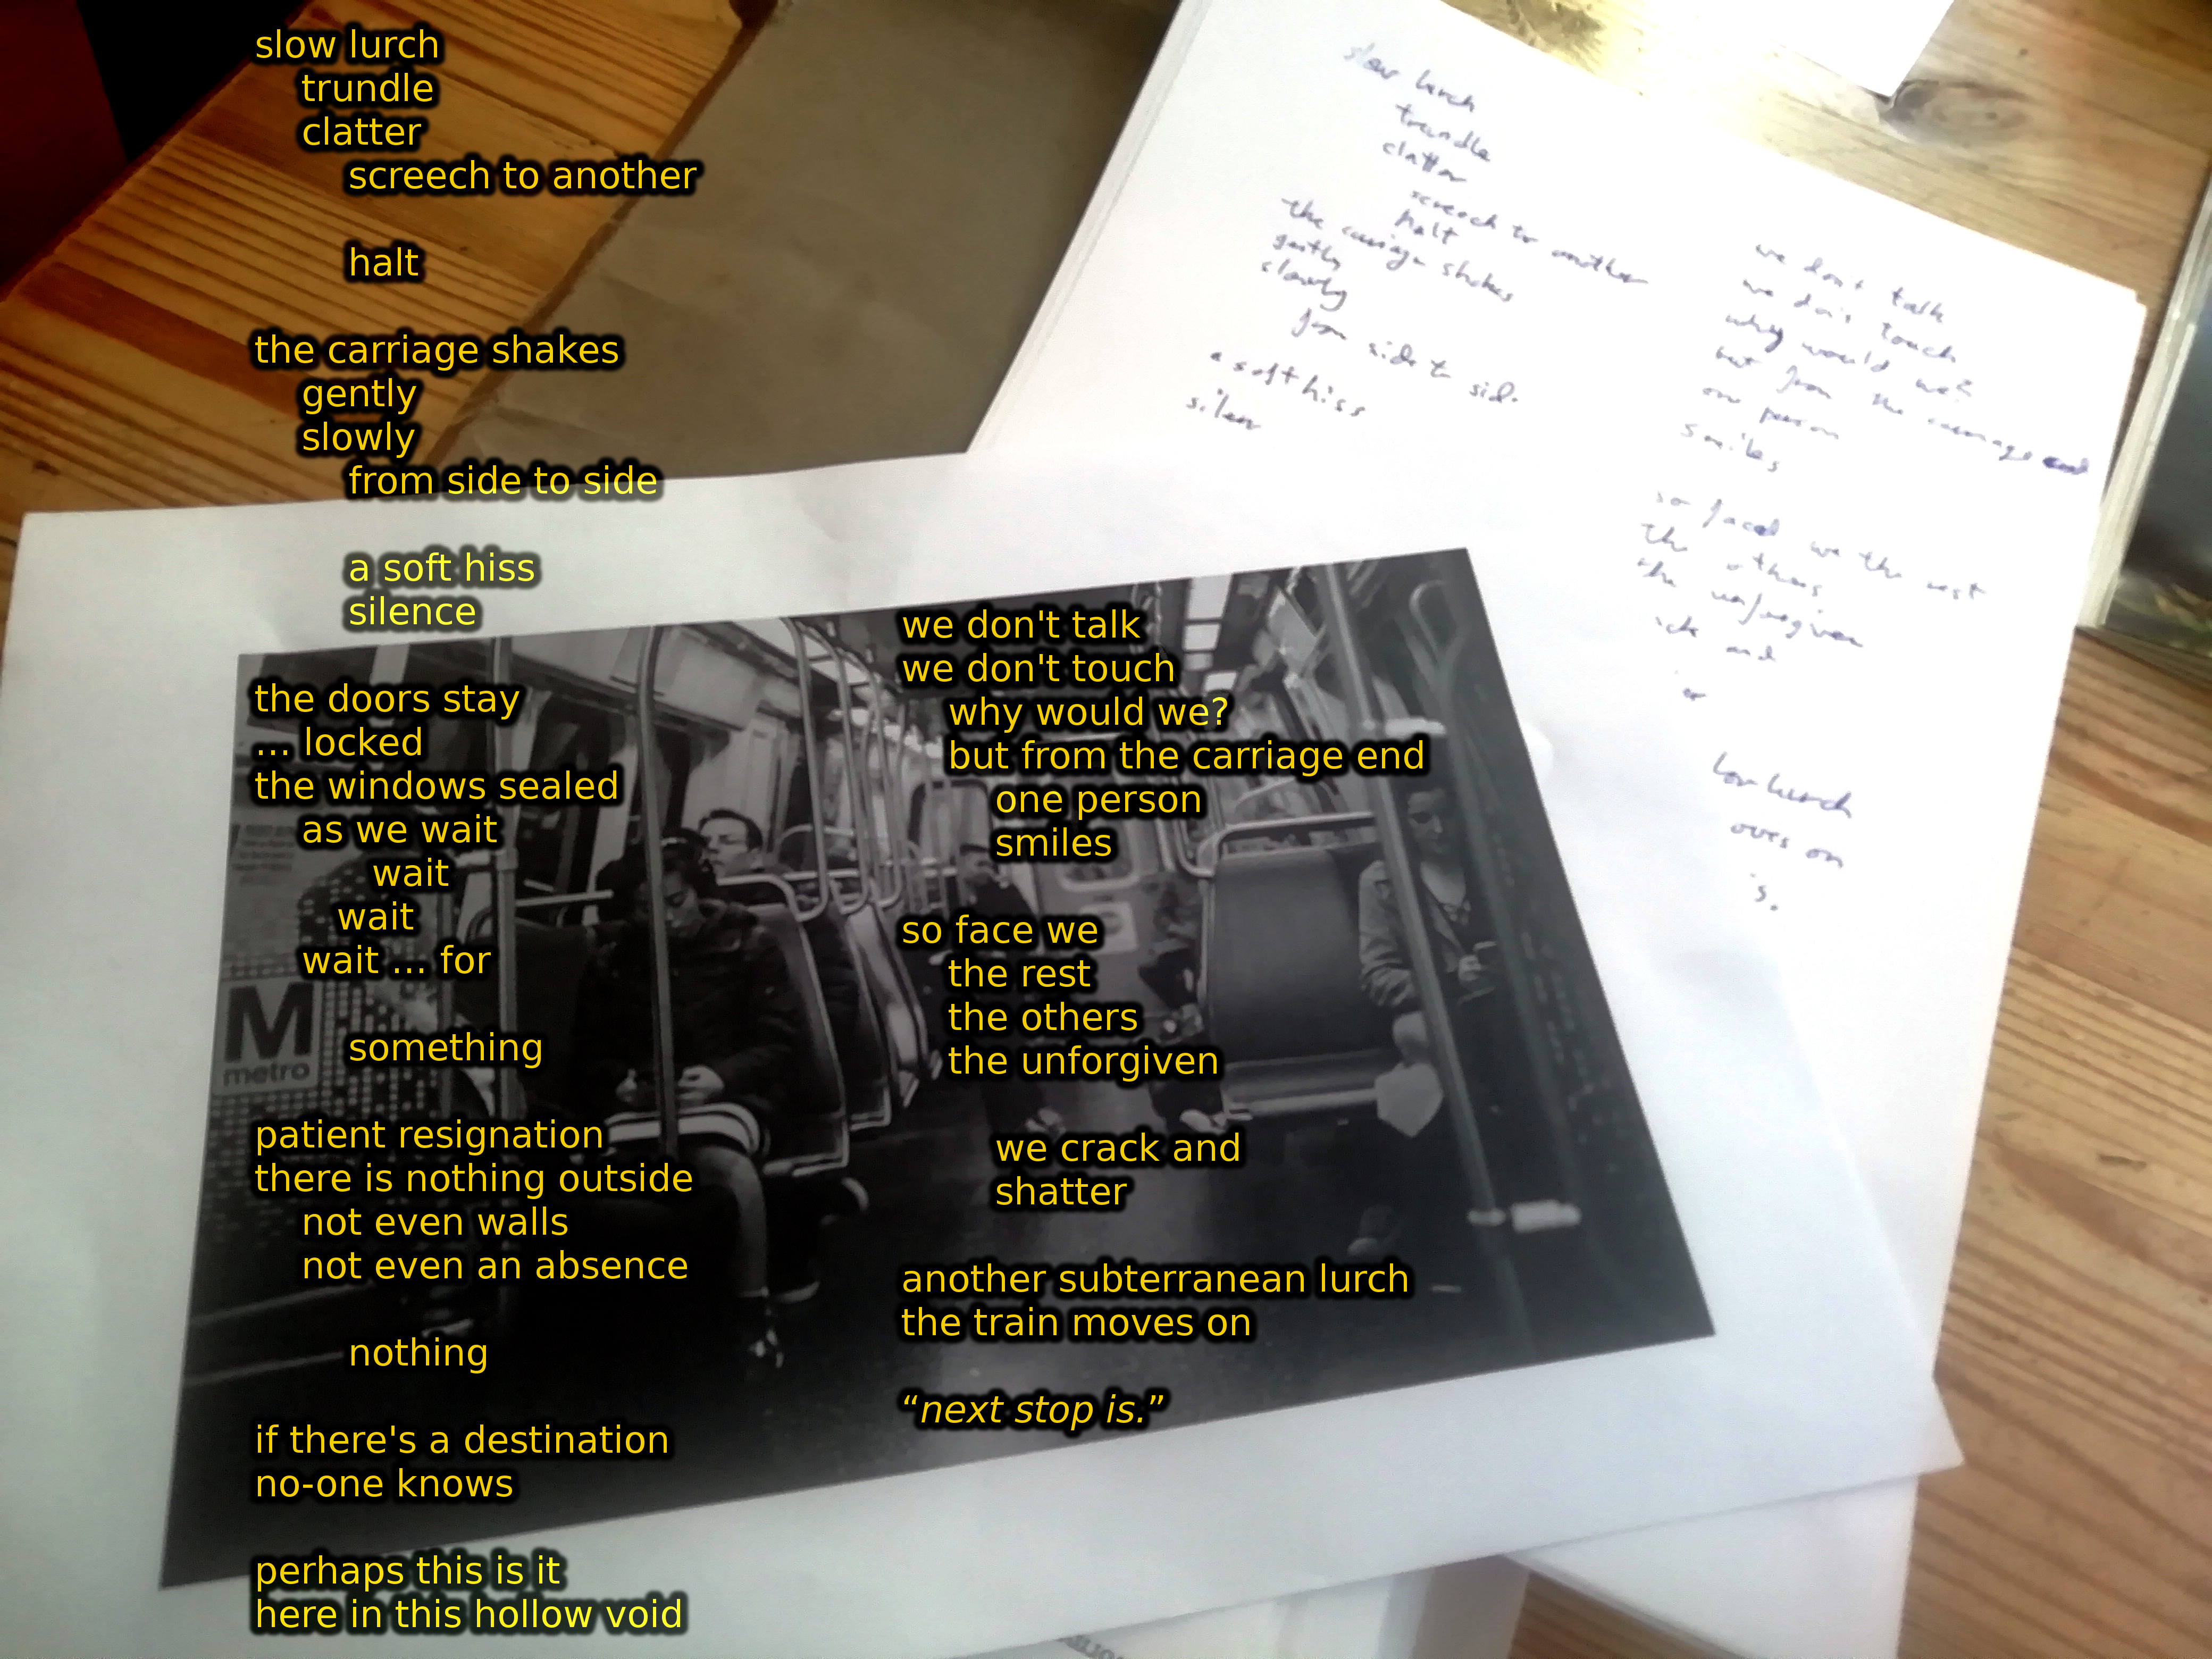 slow lurch
trundle
clatter
screech to another
halt
the carriage shakes
gently
slowly
from side to side
a soft hiss
silence
the doors stay
... locked
the windows sealed
as we wait
wait
wait
wait ... for
something
patient resignation
there is nothing outside
not even walls
not even an absence
nothing
if there's a destination
no-one knows
perhaps this is it
here in this hollow void
we don't talk
we don't touch
why would we?
but from the carriage end
one person
smiles
so face we
the rest
the others
the unforgiven
we crack and
shatter
another subterranean lurch
the train moves on
“next stop is.”
slow lurch
trundle
clatter
screech to another
halt
the carriage shakes
gently
slowly
from side to side
a soft hiss
silen
we don't talk
we don't touch
why would we?
but from the carriage end
one person
smiles
so faced we the rest
the others
the unforgiven
and
lurch
oves on
is.
M
metro